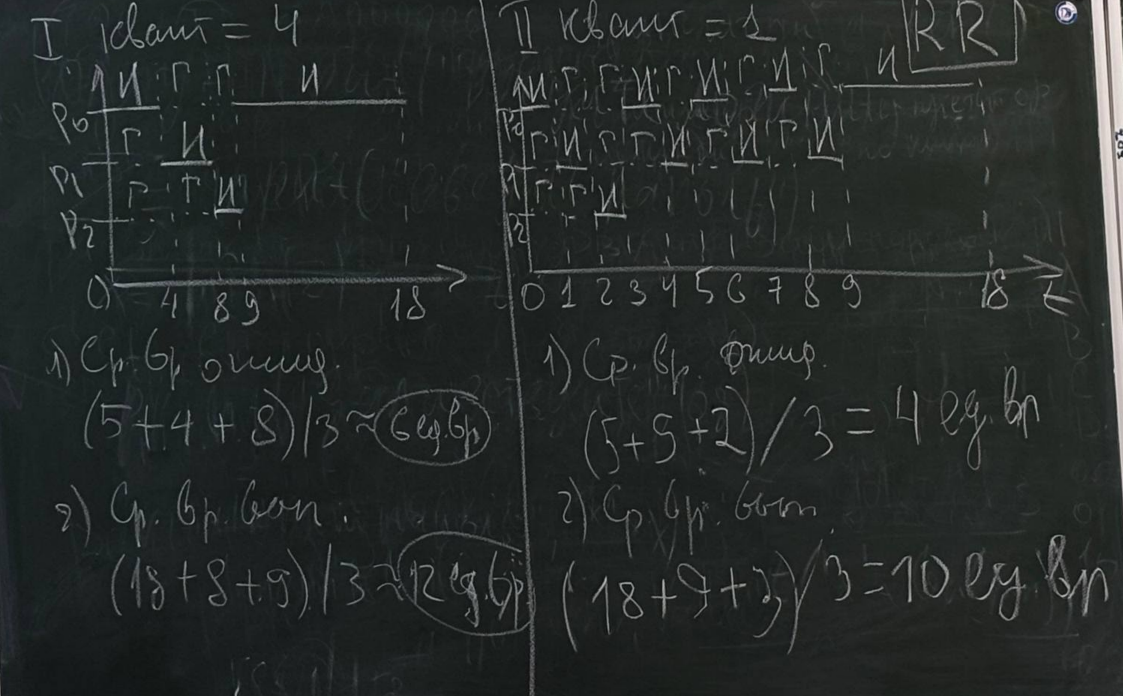 I квант = 4
И Г Г И
P0
Г И
P1
Г Г И
P2
0 4 8 9 18
1) Ср. вр. ожид.
(5+4+8)/3 ≈ 6 ед.вр
2) Ср. вр. вып.
(18+8+9)/3 ≈ 12 ед.вр
II квант = 1 RR
И Г Г И Г И Г И Г И
P0
Г И Г Г И Г И Г И
P1
Г Г И
P2
0 1 2 3 4 5 6 7 8 9 18 t
1) Ср. вр. ожид.
(5+5+2)/3 = 4 ед. вр
2) Ср. вр. вып.
(18+9+3)/3=10 ед. вр